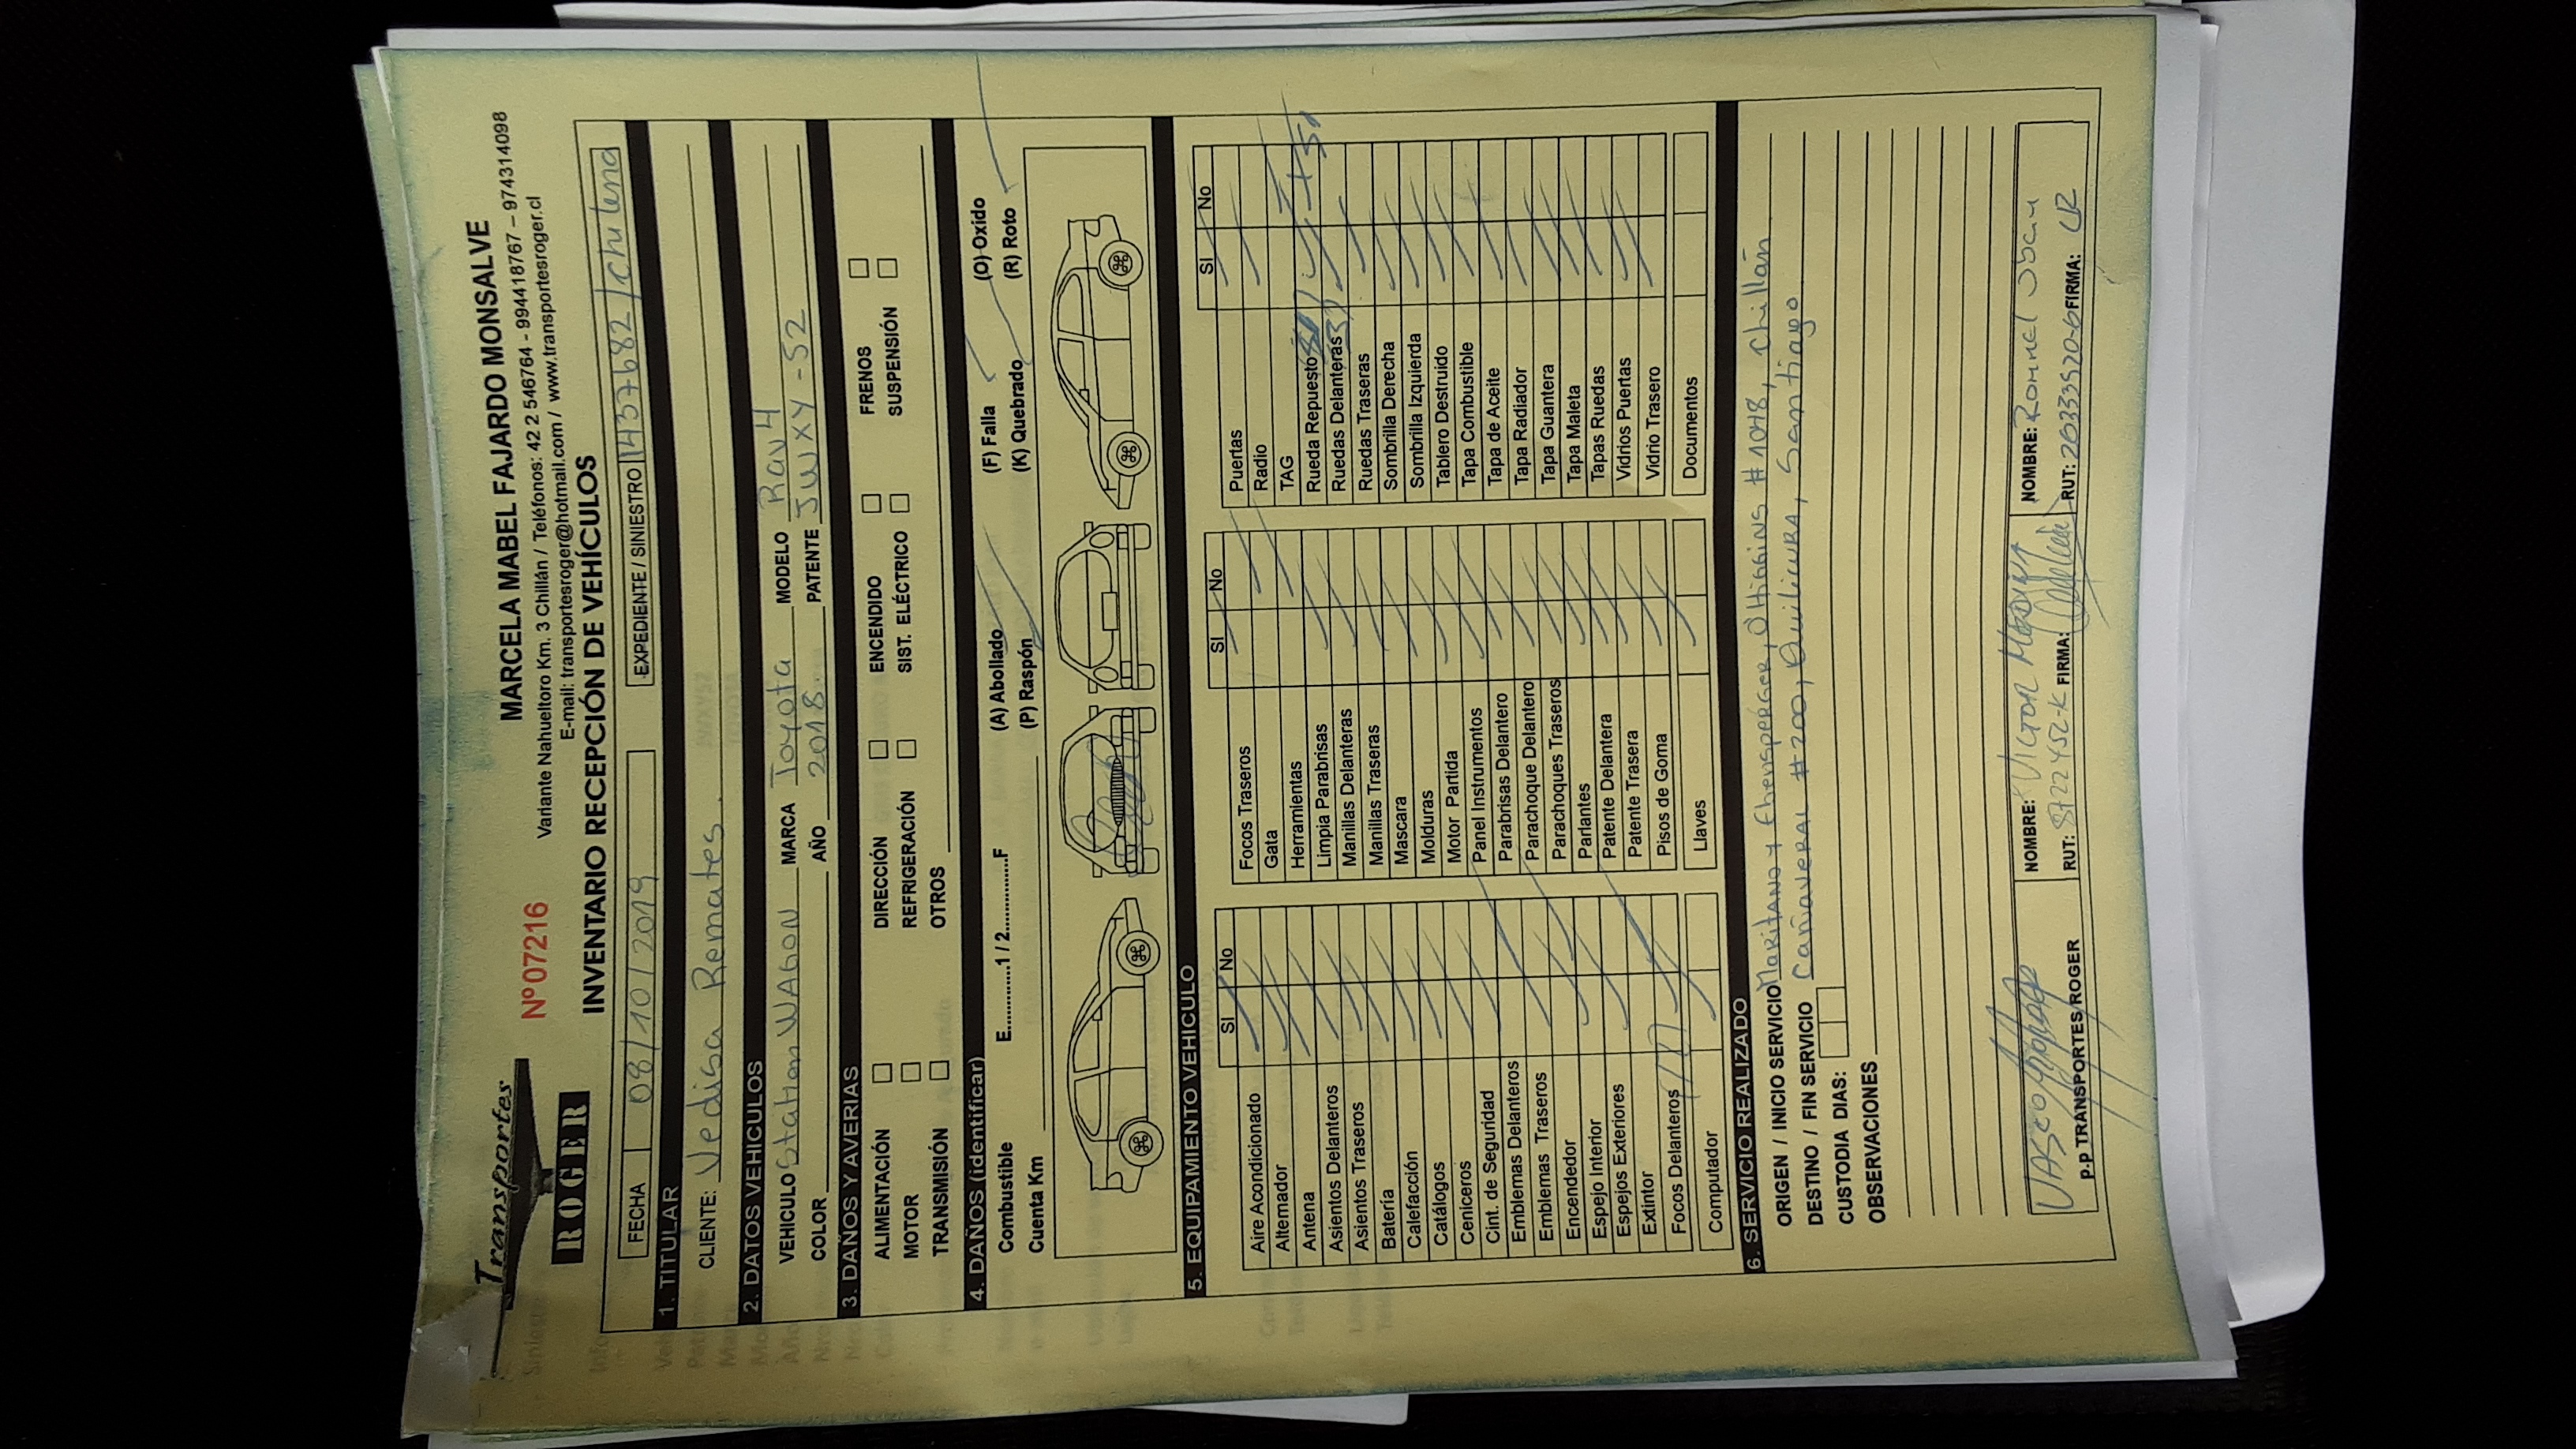 Transportes
ROGER
Nº 07216
MARCELA MABEL FAJARDO MONSALVE
Variante Nahueltoro Km. 3 Chillán / Teléfonos: 42 2 546764 - 994418767 – 974314098
E-mail: transportesroger@hotmail.com / www.transportesroger.cl
INVENTARIO RECEPCIÓN DE VEHÍCULOS
FECHA 08/10/2019 EXPEDIENTE / SINIESTRO 1437682 / chilena
1. TITULAR
CLIENTE: Vedisa Remates.
2. DATOS VEHICULOS
VEHICULO Station WAGON MARCA Toyota MODELO Rav 4
COLOR AÑO 2018 PATENTE JWXY-52
3. DAÑOS Y AVERIAS
ALIMENTACIÓN DIRECCIÓN ENCENDIDO FRENOS
MOTOR REFRIGERACIÓN SIST. ELÉCTRICO SUSPENSIÓN
TRANSMISIÓN OTROS
4. DAÑOS (identificar)
Combustible E............1 / 2............F (A) Abollado (F) Falla (O) Oxido
Cuenta Km (P) Raspón (K) Quebrado (R) Roto
5. EQUIPAMIENTO VEHICULO
SI No
Aire Acondicionado
Alternador
Antena
Asientos Delanteros
Asientos Traseros
Batería
Calefacción
Catálogos
Ceniceros
Cint. de Seguridad
Emblemas Delanteros
Emblemas Traseros
Encendedor
Espejo Interior
Espejos Exteriores
Extintor
Focos Delanteros
Computador
SI No
Focos Traseros
Gata
Herramientas
Limpia Parabrisas
Manillas Delanteras
Manillas Traseras
Mascara
Molduras
Motor Partida
Panel Instrumentos
Parabrisas Delantero
Parachoque Delantero
Parachoques Traseros
Parlantes
Patente Delantera
Patente Trasera
Pisos de Goma
Llaves
SI No
Puertas
Radio
TAG
Rueda Repuesto
Ruedas Delanteras
Ruedas Traseras
Sombrilla Derecha
Sombrilla Izquierda
Tablero Destruido
Tapa Combustible
Tapa de Aceite
Tapa Radiador
Tapa Guantera
Tapa Maleta
Tapas Ruedas
Vidrios Puertas
Vidrio Trasero
Documentos
6. SERVICIO REALIZADO
ORIGEN / INICIO SERVICIO Maritano y Ebensperger, O'Higgins # 1048, Chillán
DESTINO / FIN SERVICIO Cañaveral #200, Quilicura, Santiago
CUSTODIA DIAS:
OBSERVACIONES
p.p TRANSPORTES ROGER
NOMBRE: VICTOR MEDINA
RUT: 8722452-K FIRMA:
NOMBRE: Rommel
RUT: 26333520-6 FIRMA: